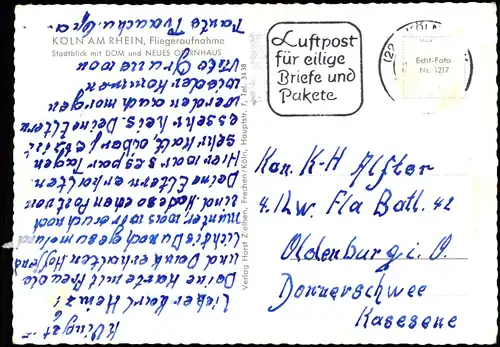 KÖLN AM RHEIN, Fliegeraufnahme
Stadtblick mit DOM und NEUES OPERNHAUS
Luftpost
für eilige
Briefe und
Pakete
KÖLN
(22
Echt-Foto
Nr. 1217
Verlag Horst Ziethen, Frechen/Köln, Hauptstr. 7, Tel. 3438
Kan. K-H Alfter
4. Lw. Fla Batl. 42
Oldenburg i. O.
Donnerschwee
Kaserne
Lieber Karl Heinz!
Deine Karte mit Freude
und Dank erhalten. Hoffend
Du noch gesund und
munter was wir auch noch
sind. Habe schon Post von
Deine Eltern erhalten.
Hier war es paar Tagen
sehr kalt, aber jetzt ist
es sehr heis. Deine Eltern
werden auch morgen
wieder kommen
Viele Grüsse von
Tante u. Opa.